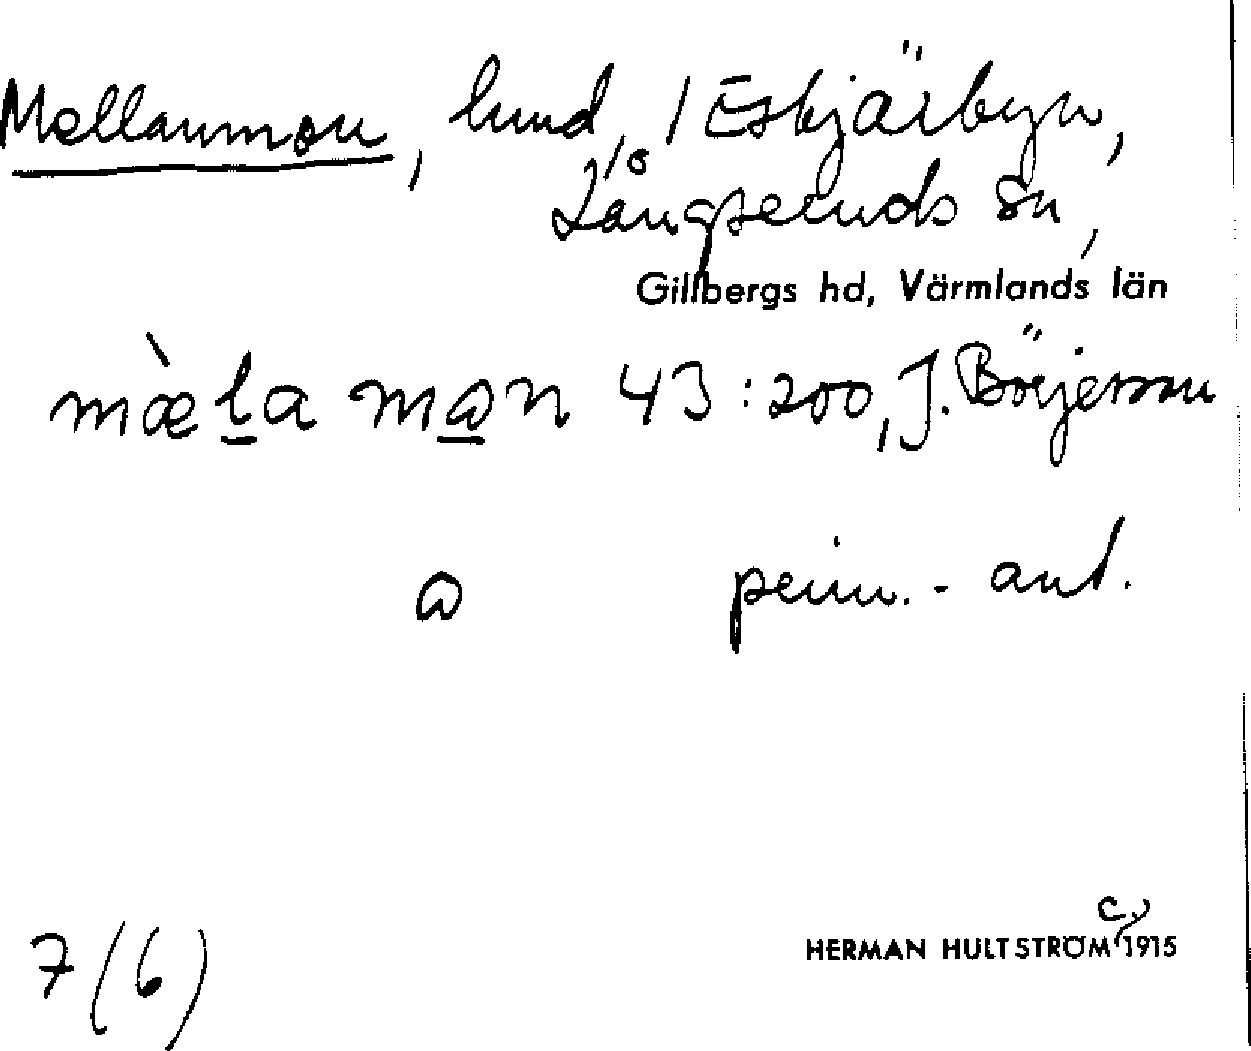 Mellanmon, lund, 1/8 Eskjärbyn,
Långseruds sn,
Gillbergs hd, Värmlands län
mæ̀ḻa mɷ̱n 43:200, J. Börjesson
ɷ prim.-ant.
7(6)
c.
HERMAN HULTSTRÖM 1915